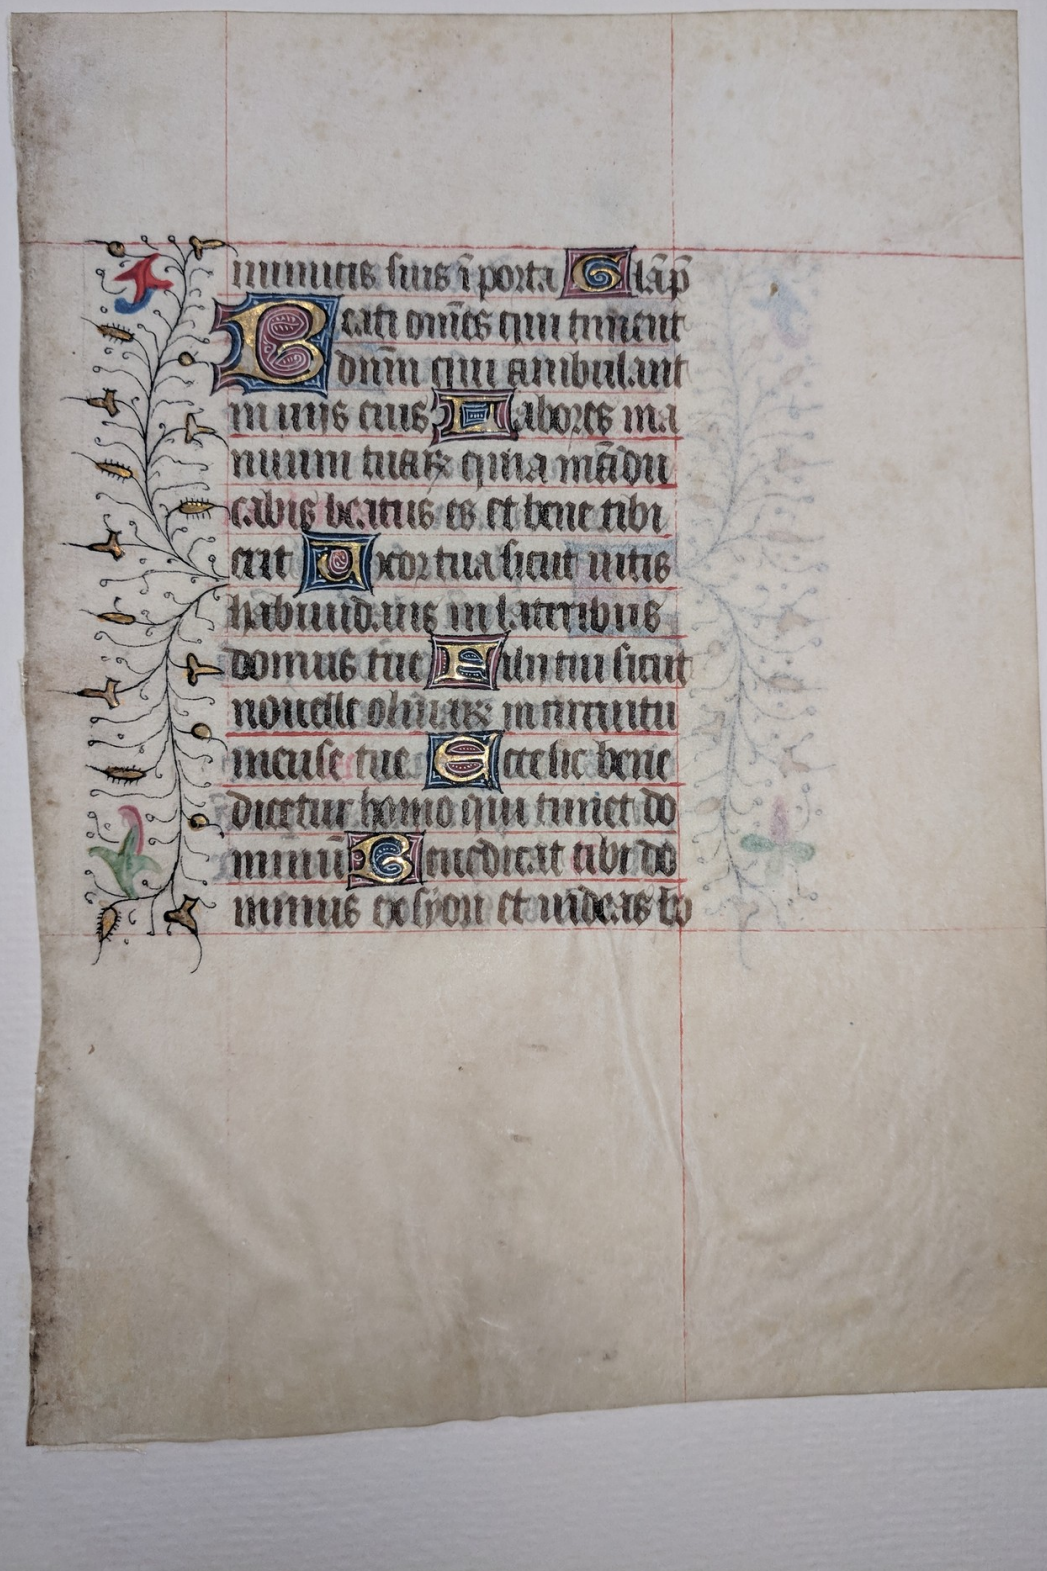 inimicis suis ĩ porta Gl̃a p̃
Beati om̃es qui timent
dñm qui ambulant
in uijs eius Labores ma
nuum tuaꝝ quia mãdu
cabis beatus es et bene tibi
erit Uxor tua sicut uitis
habundans in lateribus
domus tue Filij tui sicut
nouelle oliuaꝝ in circuitu
mense tue Ecce sic bene
dicetur homo qui timet do
minũ Benedicat tibi do
minus ex syon et uideas bo